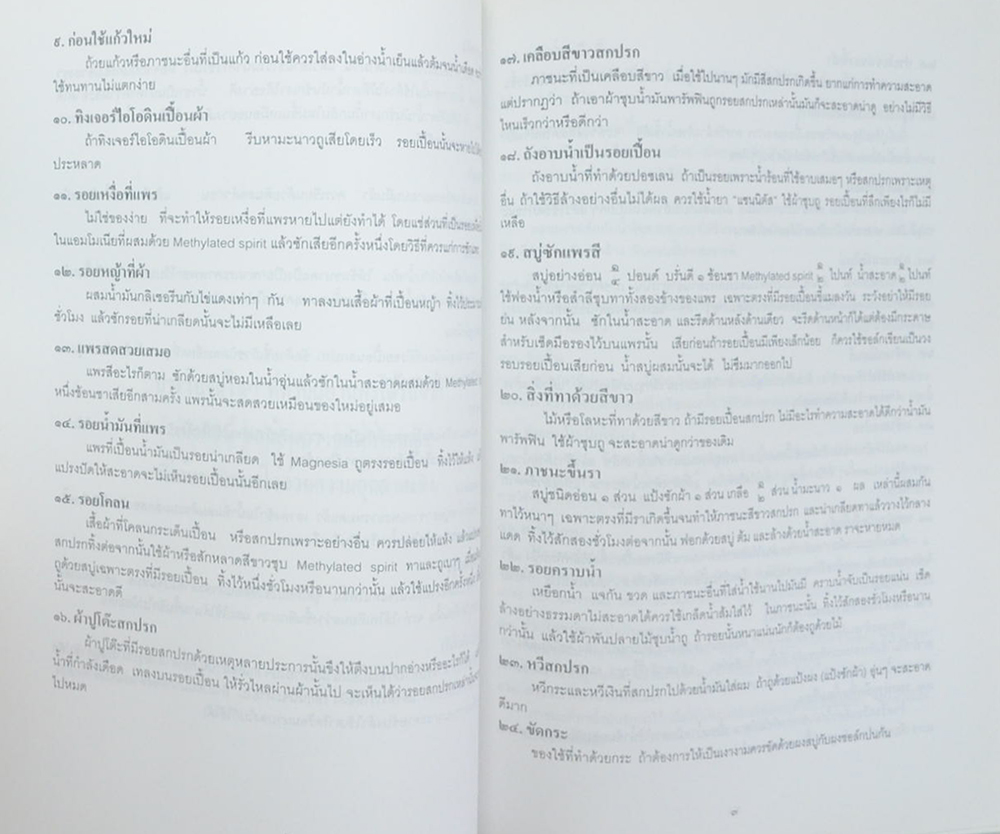 ๙. ก่อนใช้แก้วใหม่
ถ้วยแก้วหรือภาชนะอื่นที่เป็นแก้ว ก่อนใช้ควรใส่ลงในอ่างน้ำเย็นแล้วต้มจนน้ำเดือด
ใช้ทนทานไม่แตกง่าย
๑๐. ทิงเจอร์ไอโอดินเปื้อนผ้า
ถ้าทิงเจอร์ไอโอดินเปื้อนผ้า รีบหามะนาวถูเสียโดยเร็ว รอยเปื้อนนั้นจะหาย
ประหลาด
๑๑. รอยเหงื่อที่แพร
ไม่ใช่ของง่าย ที่จะทำให้รอยเหงื่อที่แพรหายไปแต่ยังทำได้ โดยแช่ส่วนที่เป็นรอย
ในแอมโมเนียที่ผสมด้วย Methylated spirit แล้วซักเสียอีกครั้งหนึ่งโดยวิธีที่ควรแก่การซัก
๑๒. รอยหญ้าที่ผ้า
ผสมน้ำมันกลีเซอรีนกับไข่แดงเท่าๆ กัน ทาลงบนเสื้อผ้าที่เปื้อนหญ้า ทิ้งไว้
ชั่วโมง แล้วซักรอยที่น่าเกลียดนั้นจะไม่มีเหลือเลย
๑๓. แพรสดสวยเสมอ
แพรสีอะไรก็ตาม ซักด้วยสบู่หอมในน้ำอุ่นแล้วซักในน้ำสะอาดผสมด้วย Methylated
หนึ่งช้อนชาเสียอีกสามครั้ง แพรนั้นจะสดสวยเหมือนของใหม่อยู่เสมอ
๑๔. รอยน้ำมันที่แพร
แพรที่เปื้อนน้ำมันเป็นรอยน่าเกลียด ใช้ Magnesia ถูตรงรอยเปื้อน ทิ้งไว้ให้แห้ง
แปรงปัดให้สะอาดจะไม่เห็นรอยเปื้อนนั้นอีกเลย
๑๕. รอยโคลน
เสื้อผ้าที่โคลนกระเด็นเปื้อน หรือสกปรกเพราะอย่างอื่น ควรปล่อยให้แห้ง
สกปรกทิ้งต่อจากนั้นใช้ผ้าหรือสักหลาดสีขาวชุบ Methylated spirit ทาและถูเบาๆ
ถูด้วยสบู่เฉพาะตรงที่มีรอยเปื้อน ทิ้งไว้หนึ่งชั่วโมงหรือนานกว่านั้น แล้วใช้แปรงอีกครั้งหนึ่ง
นั้นจะสะอาดดี
๑๖. ผ้าปูโต๊ะสกปรก
ผ้าปูโต๊ะที่มีรอยสกปรกด้วยเหตุหลายประการนั้นขึงให้ตึงบนปากอ่างหรืออะไรก็ได้
น้ำที่กำลังเดือด เทลงบนรอยเปื้อน ให้รั่วไหลผ่านผ้านั้นไป จะเห็นได้ว่ารอยสกปรกเหล่านั้น
ไปหมด
๑๗. เคลือบสีขาวสกปรก
ภาชนะที่เป็นเคลือบสีขาว เมื่อใช้ไปนานๆ มักมีสีสกปรกเกิดขึ้น ยากแก่การทำความสะอาด
แต่ปรากฏว่า ถ้าเอาผ้าชุบน้ำมันพารัฟฟินถูกรอยสกปรกเหล่านั้นมันก็จะสะอาดน่าดู อย่างไม่มีวิธี
ไหนเร็วกว่าหรือดีกว่า
๑๘. ถังอาบน้ำเป็นรอยเปื้อน
ถังอาบน้ำที่ทำด้วยปอซเลน ถ้าเป็นรอยเพราะน้ำร้อนที่ใช้อาบเสมอๆ หรือสกปรกเพราะเหตุ
อื่น ถ้าใช้วิธีล้างอย่างอื่นไม่ได้ผล ควรใช้น้ำยา "แซนนิดัส" ใช้ผ้าชุบถู รอยเปื้อนที่ลึกเพียงไรก็ไม่มี
เหลือ
๑๙. สบู่ซักแพรสี
สบู่อย่างอ่อน ๑/๔ ปอนด์ บรั่นดี ๑ ช้อนชา Methylated spirit ๑/๒ ไปนท์ น้ำสะอาด ๑/๒ ไปนท์
ใช้ฟองน้ำหรือสำลีชุบทาทั้งสองข้างของแพร เฉพาะตรงที่มีรอยเปื้อนขี้แมลงวัน ระวังอย่าให้มีรอย
ย่น หลังจากนั้น ซักในน้ำสะอาด และรีดด้านหลังด้านเดียว จะรีดด้านหน้าก็ได้แต่ต้องมีกระดาษ
สำหรับเช็ดมือรองไว้บนแพรนั้น เสียก่อนถ้ารอยเปื้อนมีเพียงเล็กน้อย ก็ควรใช้ชอล์กเขียนเป็นวง
รอบรอยเปื้อนเสียก่อน น้ำสบู่ผสมนั้นจะได้ ไม่ซึมมากออกไป
๒๐. สิ่งที่ทาด้วยสีขาว
ไม้หรือโลหะที่ทาด้วยสีขาว ถ้ามีรอยเปื้อนสกปรก ไม่มีอะไรทำความสะอาดได้ดีกว่าน้ำมัน
พารัฟฟิน ใช้ผ้าชุบถู จะสะอาดน่าดูกว่าของเดิม
๒๑. ภาชนะขึ้นรา
สบู่ชนิดอ่อน ๑ ส่วน แป้งซักผ้า ๑ ส่วน เกลือ ๑/๒ ส่วน น้ำมะนาว ๑ ผล เหล่านี้ผสมกัน
ทาไว้หนาๆ เฉพาะตรงที่มีราเกิดขึ้นจนทำให้ภาชนะสีขาวสกปรก และน่าเกลียดทาแล้ววางไว้กลาง
แดด ทิ้งไว้สักสองชั่วโมงต่อจากนั้น ฟอกด้วยสบู่ ต้ม และล้างด้วยน้ำสะอาด ราจะหายหมด
๒๒. รอยคราบน้ำ
เหยือกน้ำ แจกัน ขวด และภาชนะอื่นที่ใส่น้ำใช้นานไปมันมี คราบน้ำจับเป็นรอยแน่น เช็ด
ล้างอย่างธรรมดาไม่สะอาดได้ควรใช้เกล็ดน้ำส้มใส่ไว้ ในภาชนะนั้น ทิ้งไว้สักสองชั่วโมงหรือนาน
กว่านั้น แล้วใช้ผ้าพันปลายไม้ชุบน้ำถู ถ้ารอยนั้นหนาแน่นนักก็ต้องถูด้วยไม้
๒๓. หวีสกปรก
หวีกระและหวีเงินที่สกปรกไปด้วยน้ำมันใส่ผม ถ้าถูด้วยแป้งผง (แป้งซักผ้า) อุ่นๆ จะสะอาด
ดีมาก
๒๔. ขัดกระ
ของใช้ที่ทำด้วยกระ ถ้าต้องการให้เป็นเงางามควรขัดด้วยผงสบู่กับผงชอล์กปนกัน
๓